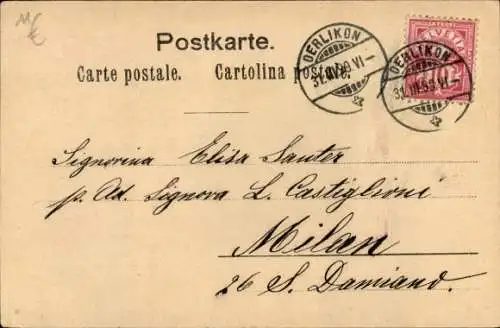 Postkarte.
Carte postale. Cartolina postale.
OERLIKON
31.III.99.VI–
HELVETIA
OERLIKON
31.III.99.VI–
Signorina Elisa Sauter
p. Ad. Signora L. Castiglioni
Milan
26 S. Damiano.